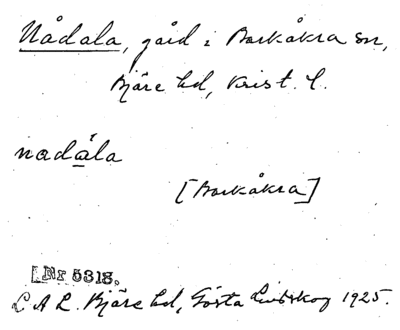 Nådala, gård i Barkåkra sn,
Bjäre hd, Krist. l.
nadåla
[Barkåkra]
[Nr 5313.
L A L. Bjäre hd, Gösta Lindskog 1925.